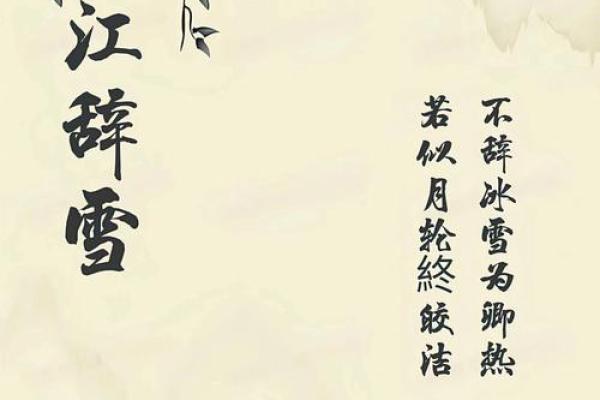 江辞雪
若似月轮終皎洁
不辞冰雪为卿热